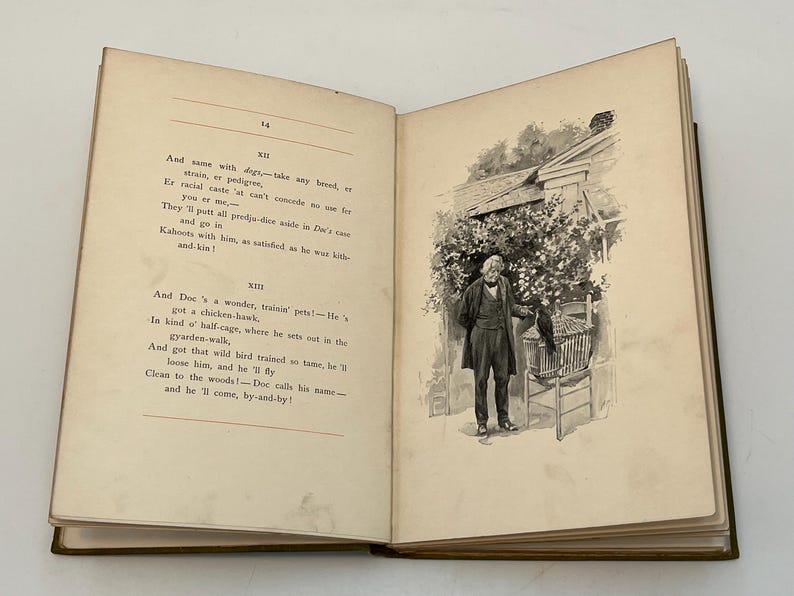 14
XII
And same with dogs,—take any breed, er
strain, er pedigree,
Er racial caste 'at can't concede no use fer
you er me,—
They 'll putt all predju-dice aside in Doc's case
and go in
Kahoots with him, as satisfied as he wuz kith-
and-kin!
XIII
And Doc 's a wonder, trainin' pets!—He 's
got a chicken-hawk,
In kind o' half-cage, where he sets out in the
gyarden-walk,
And got that wild bird trained so tame, he 'll
loose him, and he 'll fly
Clean to the woods!—Doc calls his name—
and he 'll come, by-and-by!